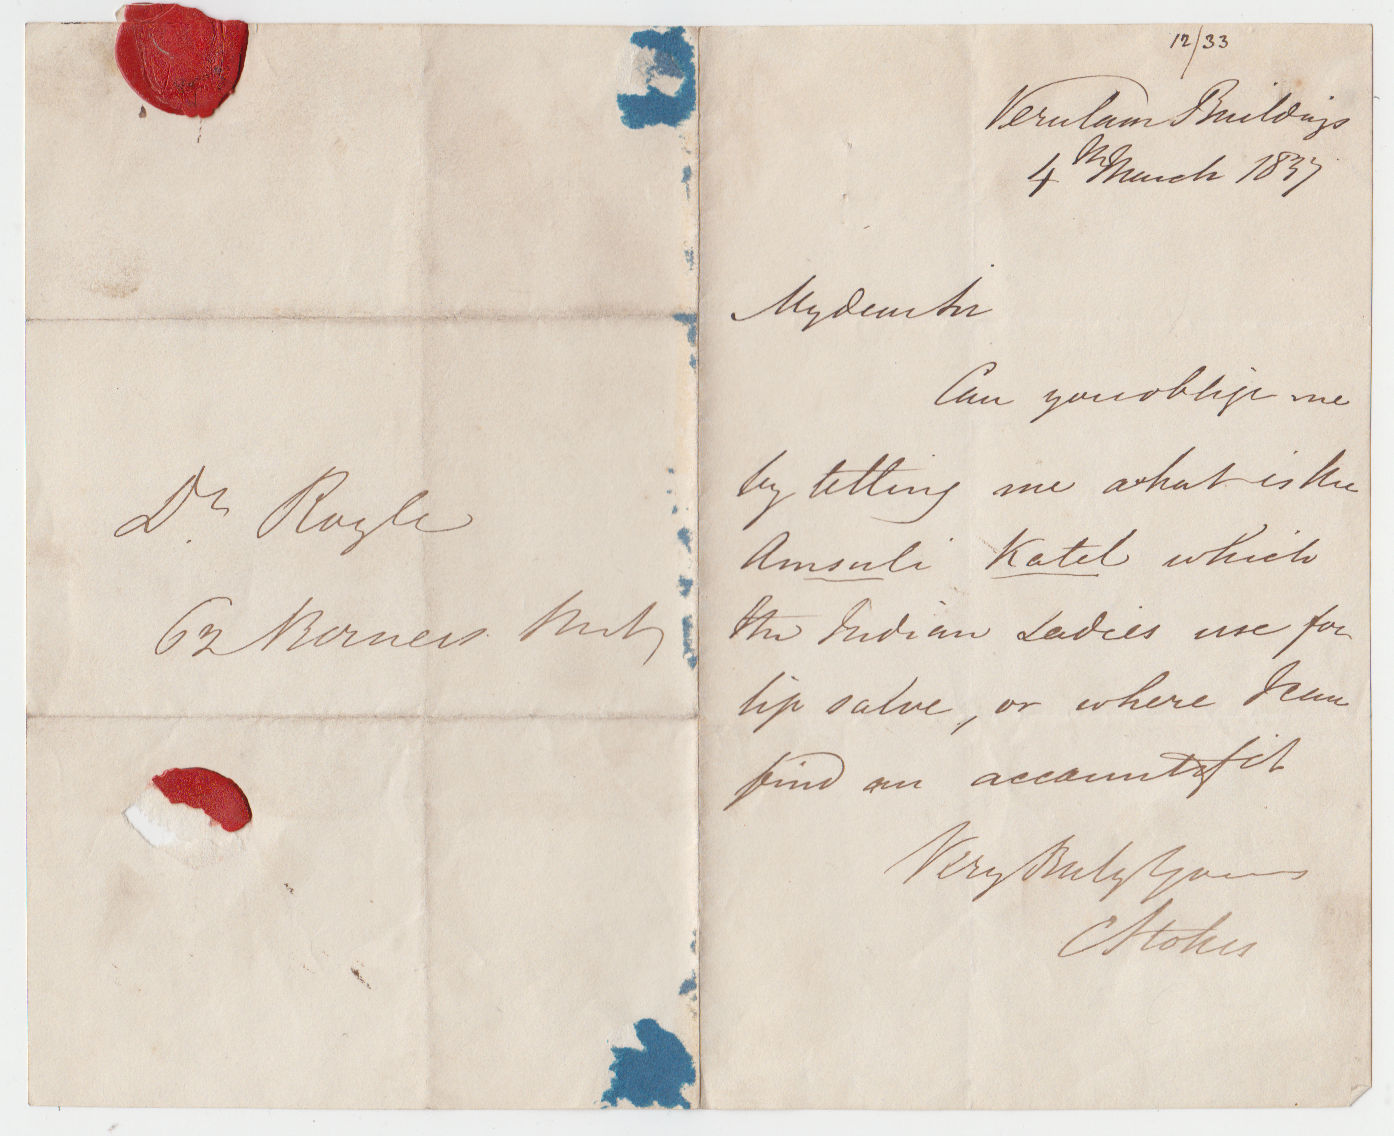 Dr. Royle
62 Berners Street
12/33
Verulam Buildings
4th March 1837
My dear Sir
Can you oblige me
by telling me what is the
Amsuli Katel which
the Indian Ladies use for
lip salve, or where I can
find an account of it
Very Truly Yours
C Stokes